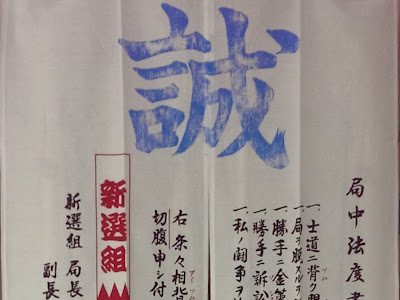 誠
局中法度書
一、士道ニ背ク
一、局ヲ脱スル
一、勝手ニ金策
一、勝手ニ訴訟
一、私ノ闘争ヲ
右条々相
切腹申シ付
新選組
新選組 局長
副長